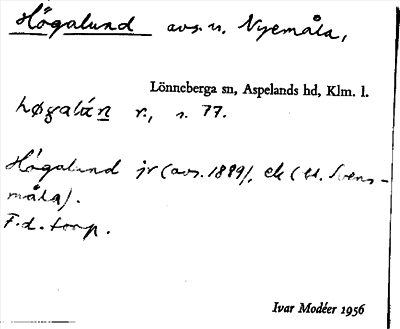 Högalund avs. u. Nyemåla,
Lönneberga sn, Aspelands hd, Klm. l.
r., s. 77.
Högalund jr (avs. 1889), ek (st. Svens-
måla).
F.d. torp.
Ivar Modéer 1956